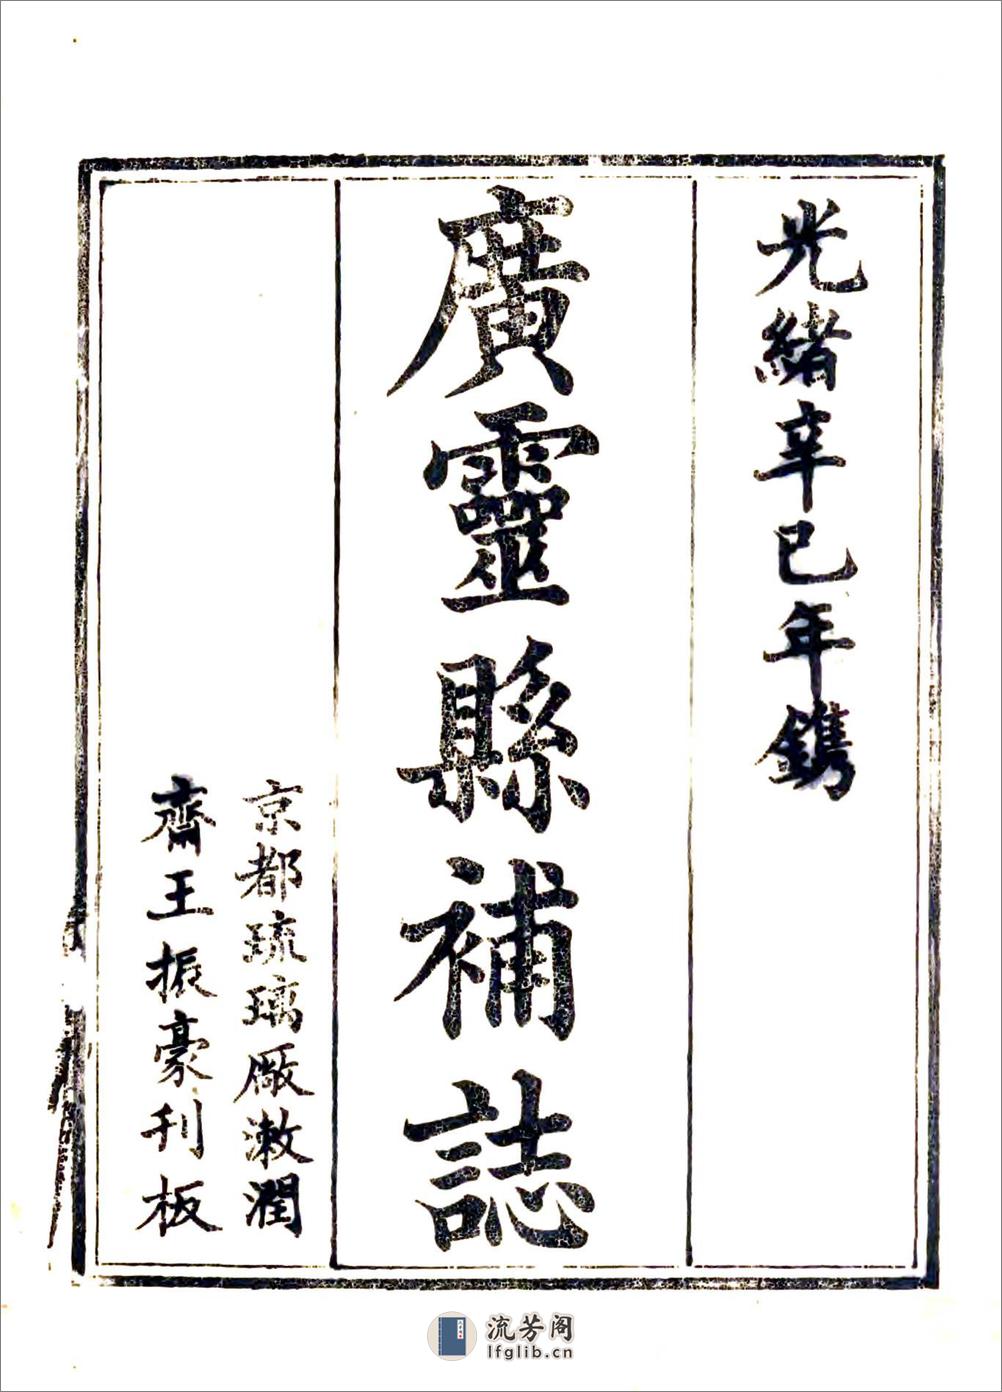 光緒辛巳年鐫
廣靈縣補誌
京都琉璃廠漱潤
齋王振豪刊板
流芳阁
lfglib.cn